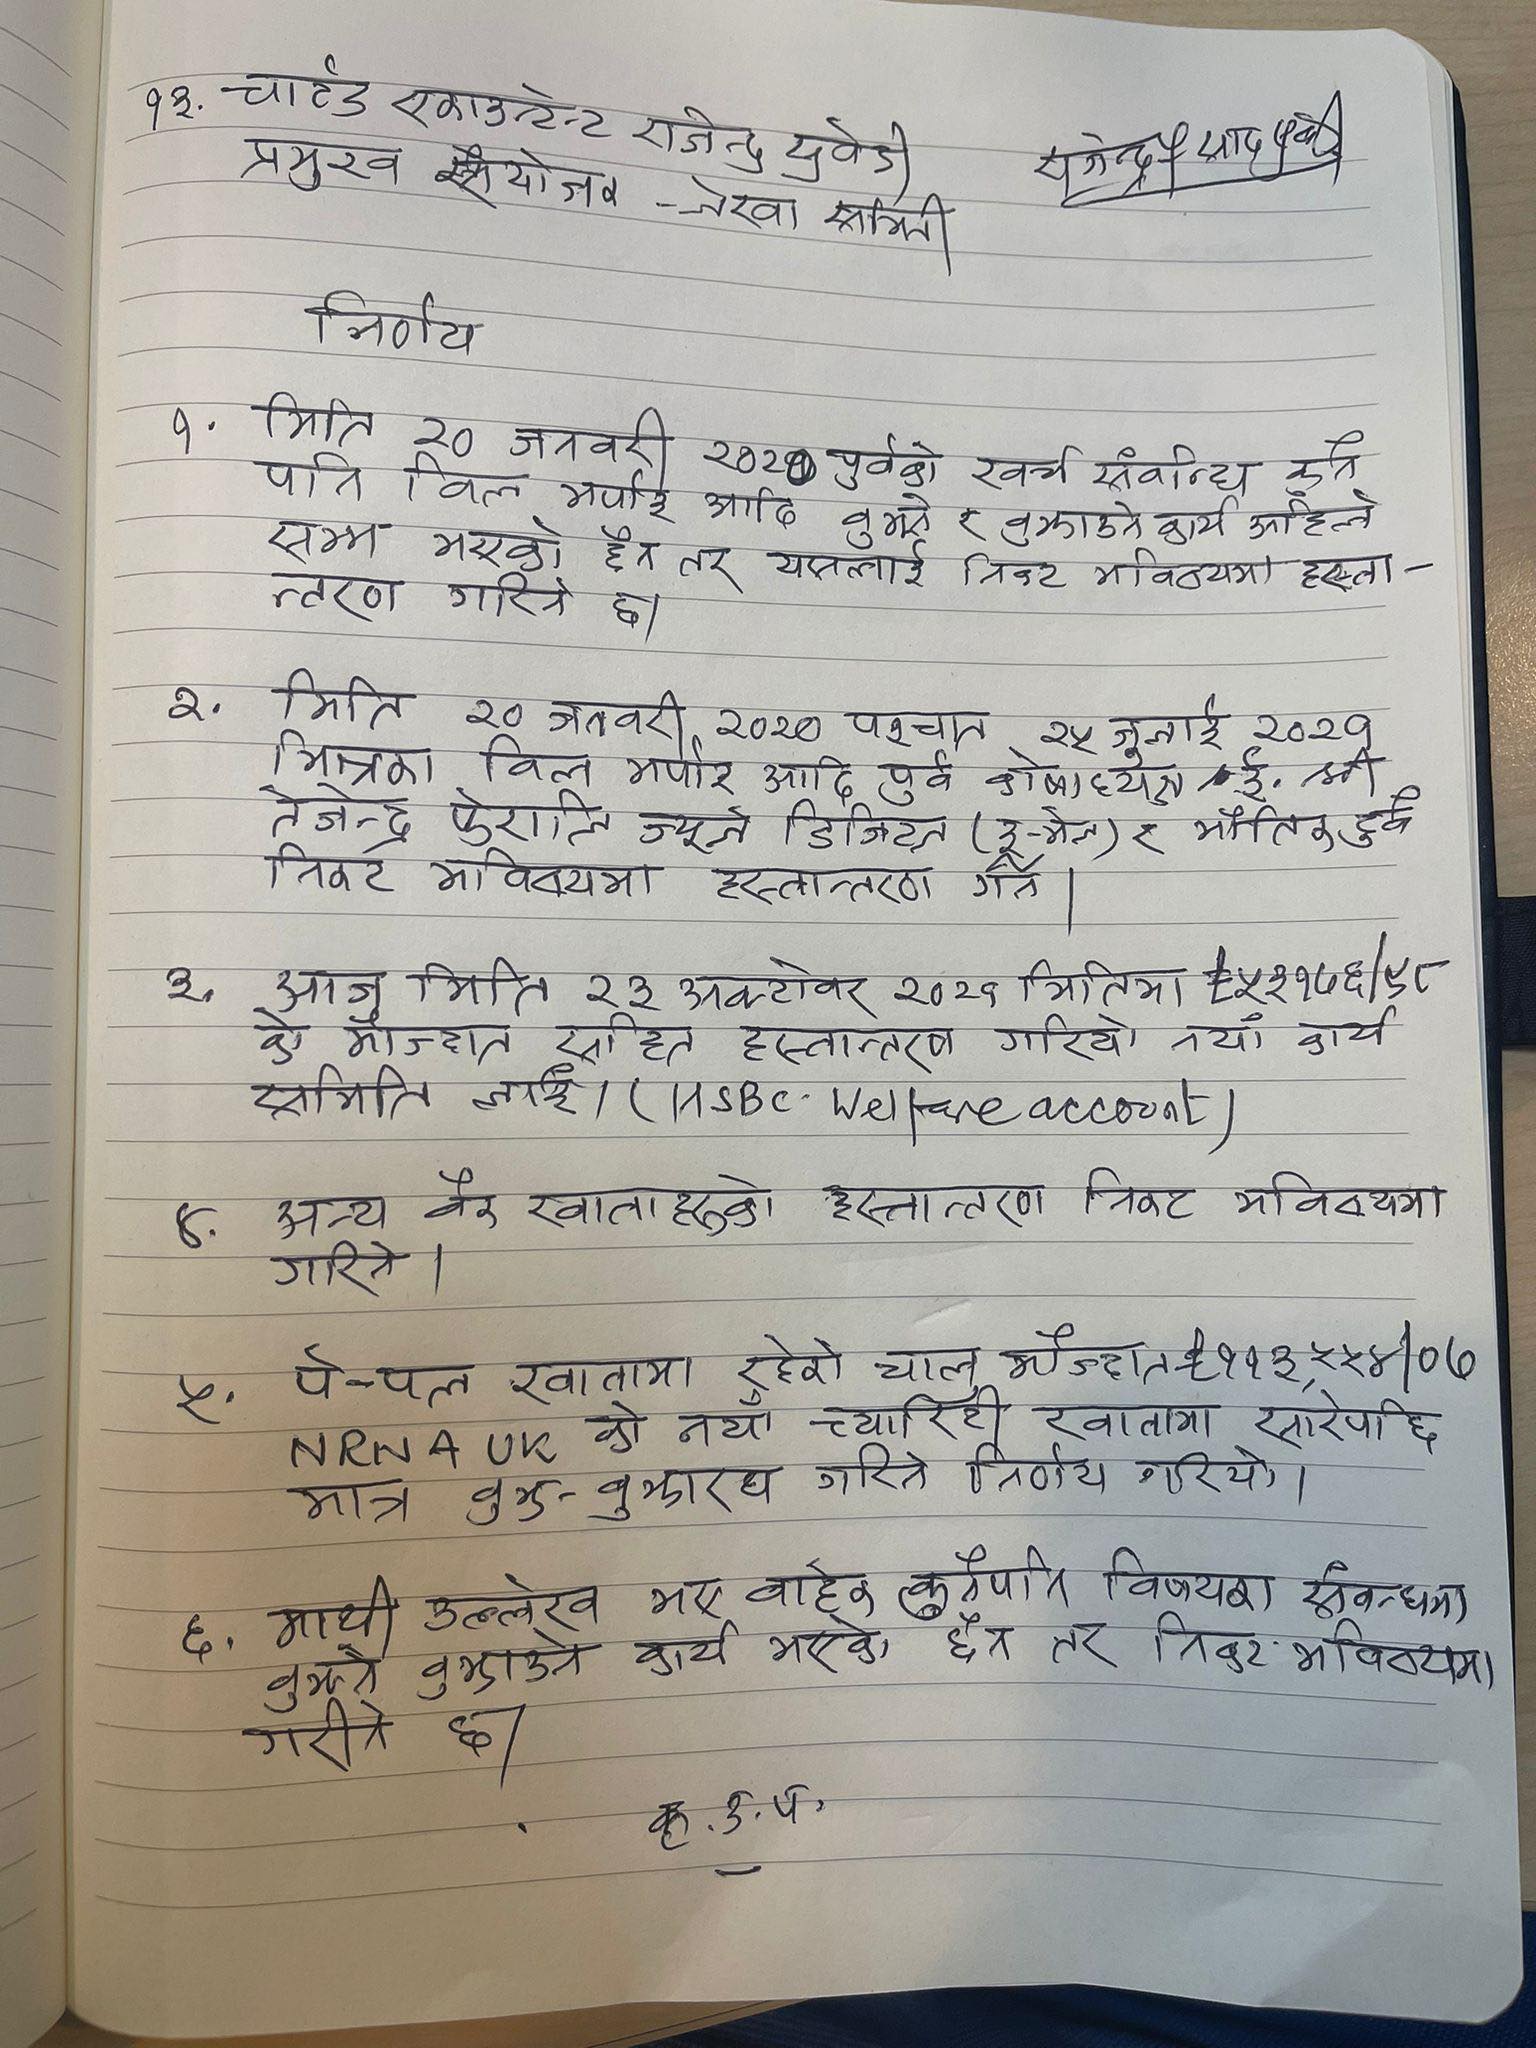 १३. चार्टड एकाउन्टेन्ट राजेन्द्र पुवेडी
प्रमुख संयोजक - लेखा समिती
निर्णय
१. मिति २० जनवरी २०२० पुर्वको खर्च संवन्धि कुनै
पनि विल भर्पाई आदि वुझ्ने र वुझाउने कार्य अहिले
सम्म भएको छैन तर यसलाई निकट भविष्यमा हस्ता-
न्तरण गरिने छ।
२. मिति २० जनवरी २०२० पश्चात २५ जुलाई २०२१
भित्रका विल भर्पाई आदि पुर्व कोषाध्यक्ष ई. श्री
तेजेन्द्र फेरालि ज्यूले डिजिटल (इ-मेल) र भौतिक दुवै
निकट भविष्यमा हस्तान्तरण गर्ने।
३. आजु मिति २३ अक्टोवर २०२१ मितिमा £५३१७६/५८
को मौज्दात सहित हस्तान्तरण गरियो नयाँ कार्य
समिति लाई। (HSBC. Welfare account)
४. अन्य वैंक खाताहरुको हस्तान्तरण निकट भविष्यमा
गरिने।
५. पे-पल खातामा रहेको चालु मौज्दात £११३,५५४/०७
NRNA UK को नयाँ च्यारिटी खातामा सारेपछि
मात्र वुझ-वुझारथ गरिने निर्णय गरियो।
६. माथी उल्लेख भए वाहेक कुनैपनि विषयका संवन्धमा
वुझ्ने वुझाउने कार्य भएको छैन तर निकट भविष्यमा
गरीने छ।